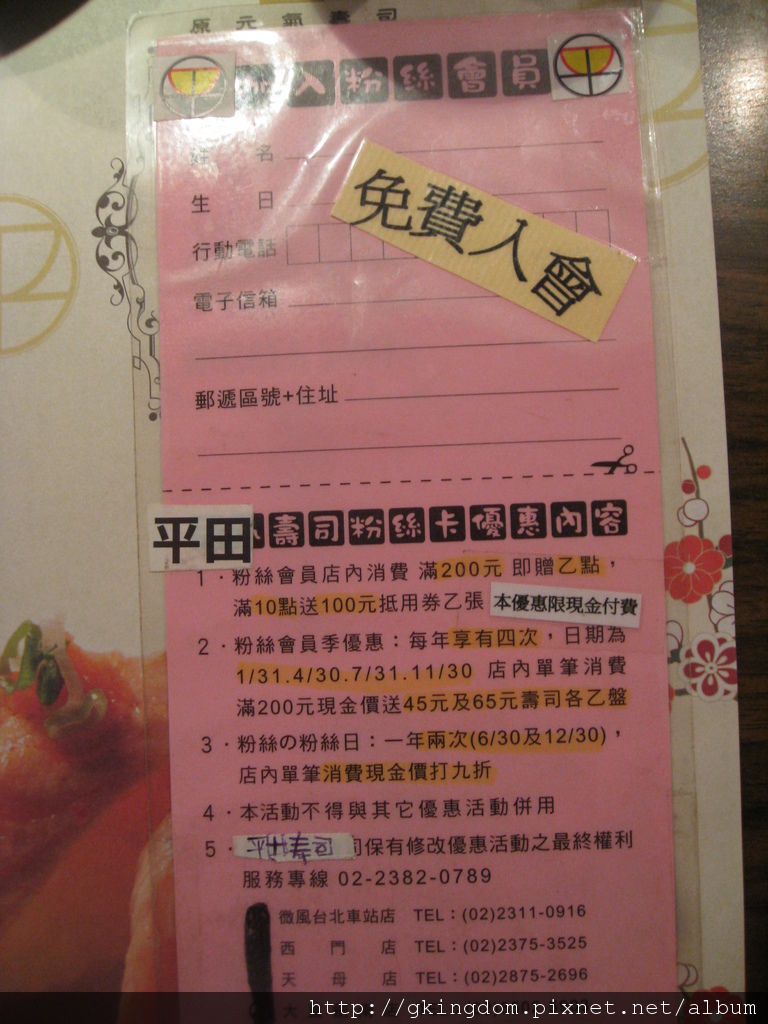 原元氣壽司
加入粉絲會員
姓名
生日
免費入會
行動電話
電子信箱
郵遞區號+住址
平田 壽司粉絲卡優惠內容
1．粉絲會員店內消費 滿200元 即贈乙點，
滿10點送100元抵用券乙張 本優惠限現金付費
2．粉絲會員季優惠：每年享有四次，日期為
1/31.4/30.7/31.11/30 店內單筆消費
滿200元現金價送45元及65元壽司各乙盤
3．粉絲の粉絲日：一年兩次(6/30及12/30)，
店內單筆消費現金價打九折
4．本活動不得與其它優惠活動併用
5．平田寿司 司保有修改優惠活動之最終權利
服務專線 02-2382-0789
微風台北車站店 TEL：(02)2311-0916
西門店 TEL：(02)2375-3525
天母店 TEL：(02)2875-2696
大
http://gkingdom.pixnet.net/album